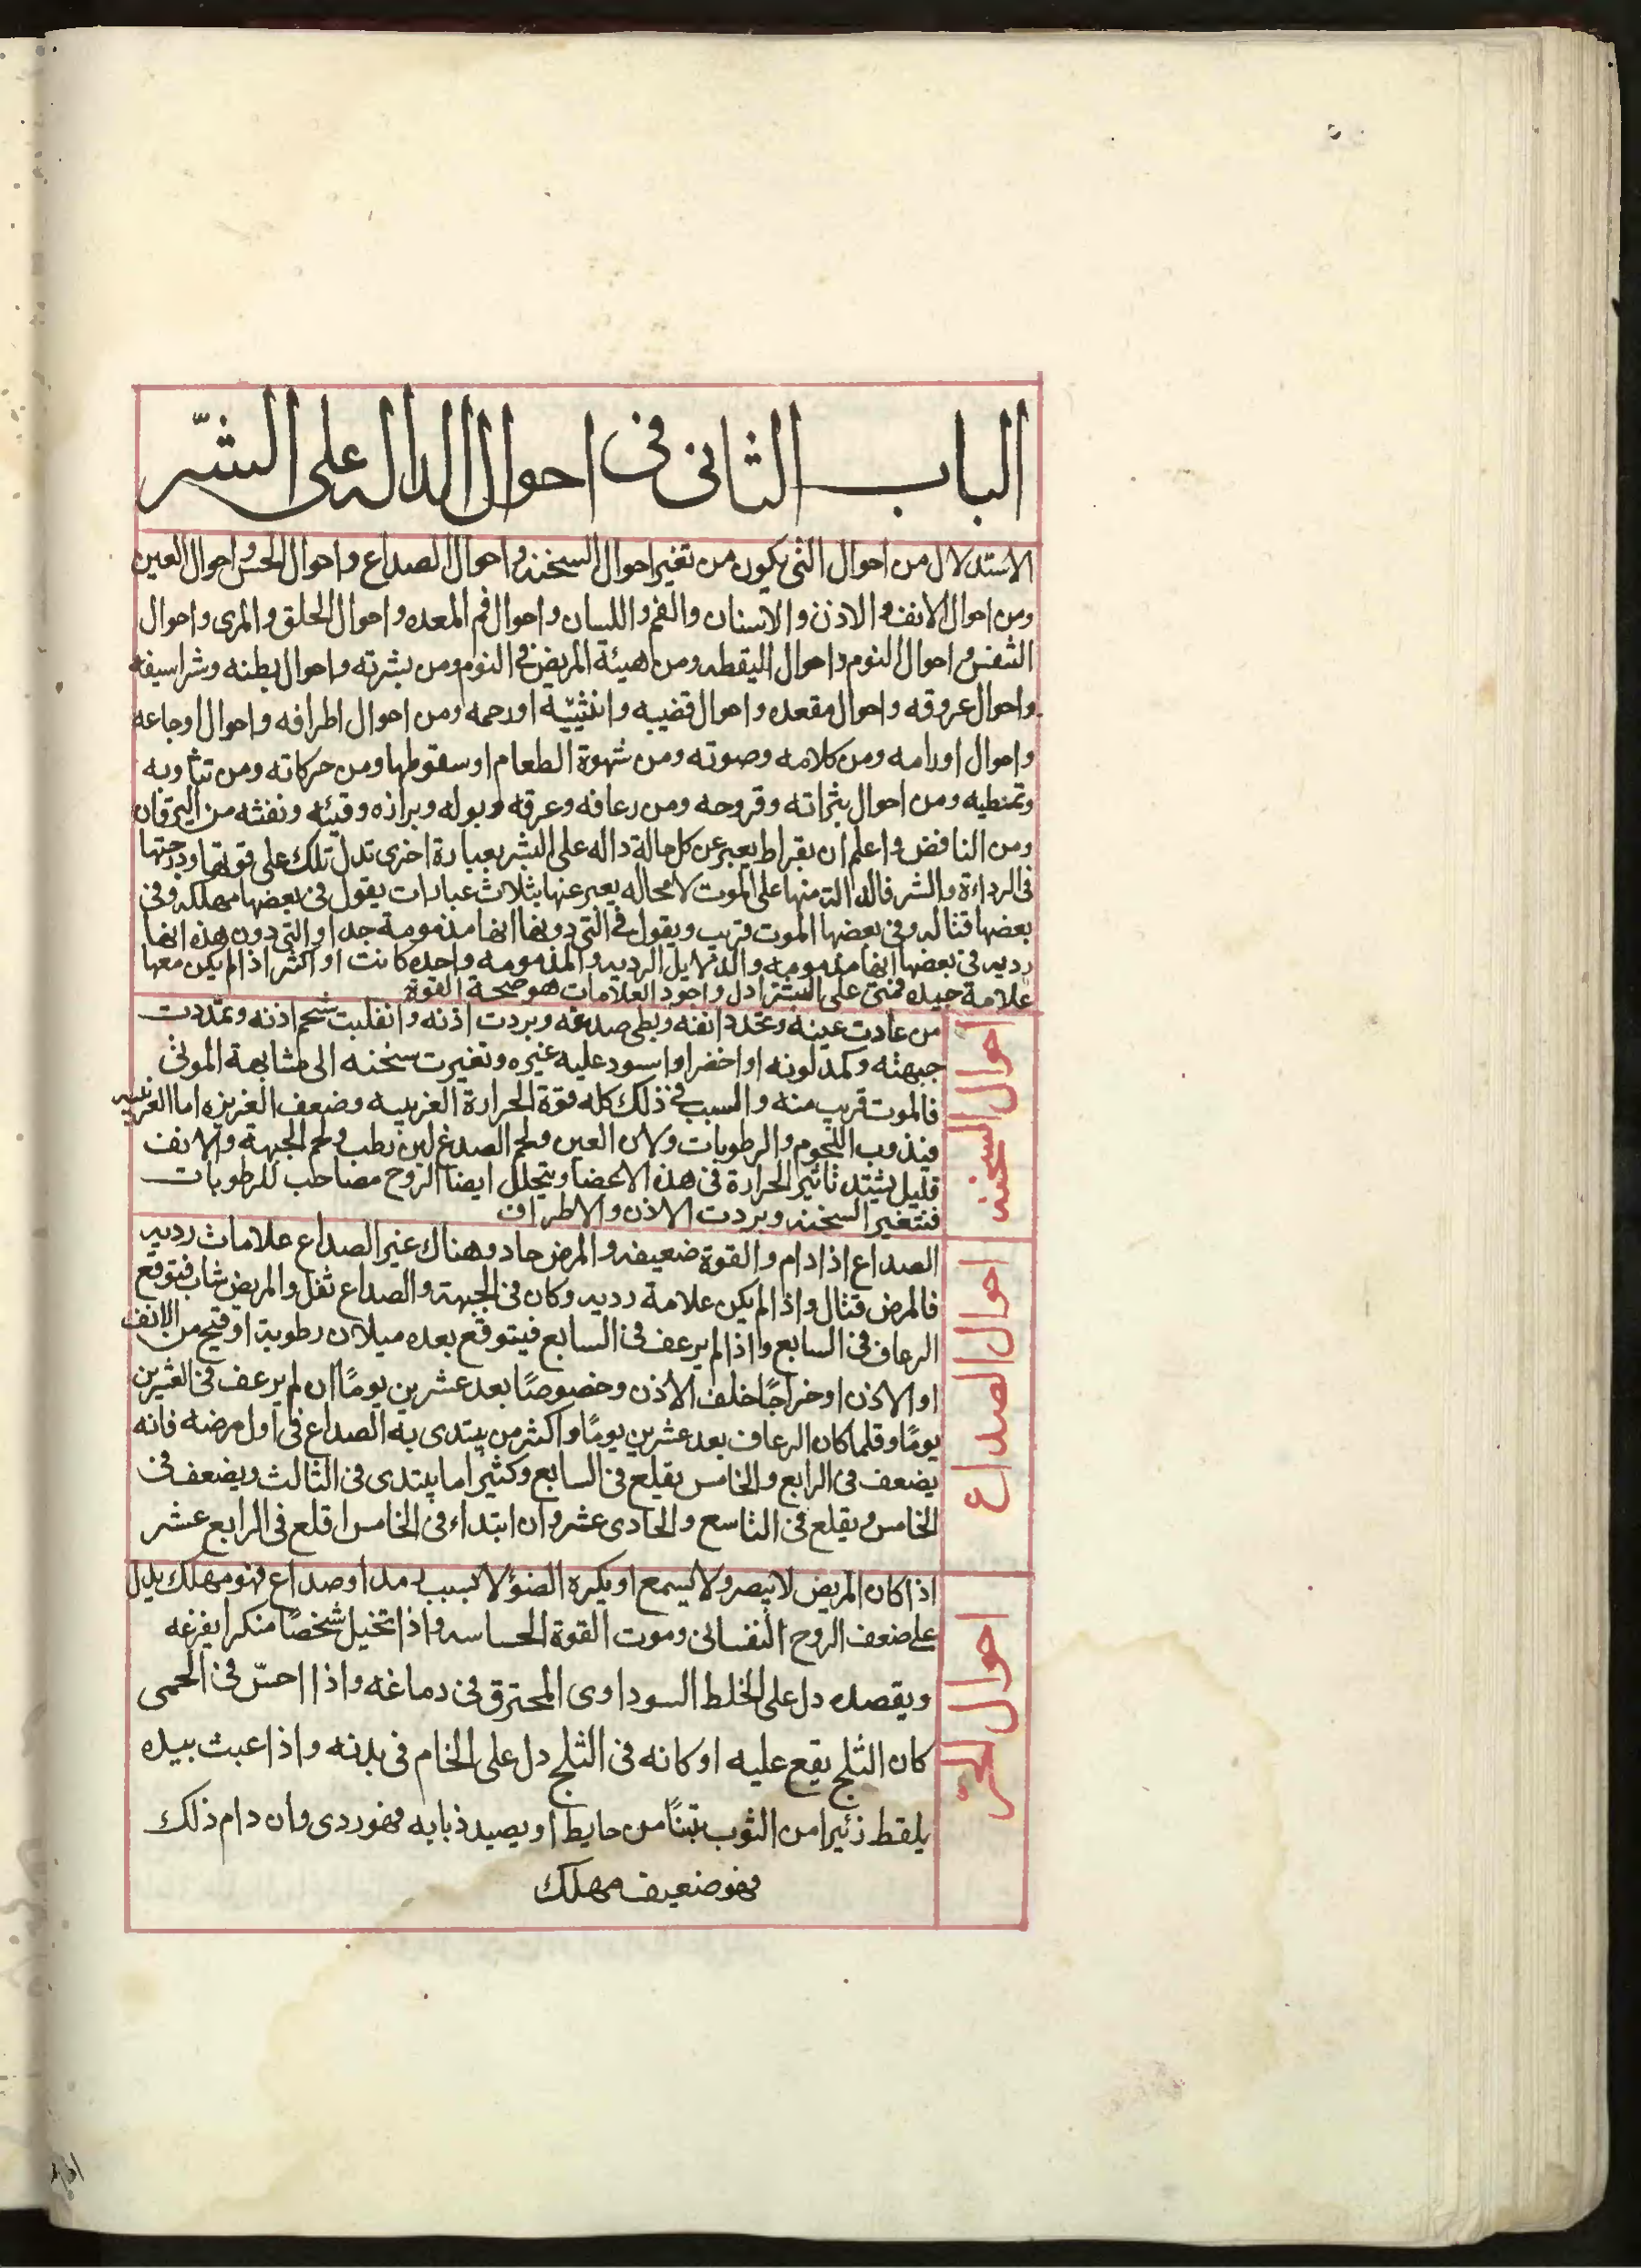 الباب الثانى فى احوال الداله على الشّر
الاستدلال من احوال التى يكون من تغير احوال السخنه واحوال الصداع واحوال الحس واحوال العين
ومن احوال الانف والاذن والاسنان والفم واللسان واحوال فم المعده واحوال الحلق والمرى واحوال
النفس واحوال النوم واحوال اليقظه ومن هيئة المريض فى النوم ومن بشرته واحوال بطنه وشراسيفه
واحوال عروقه واحوال مقعده واحوال قضيبه وانثييّه اورحمه ومن احوال اطرافه واحوال اوجاعه
واحوال اورامه ومن كلامه وصوته ومن شهوة الطعام او سقوطها ومن حركاته ومن تثاوبه
وتمطيه ومن احوال بثراته وقروحه ومن رعافه وعرقه وبوله وبرازه وقيئه ونفثه من اليرقان
ومن النافض واعلم ان بقراط يعبر عن كل حالة داله على الشر بعبارة اخرى تدل تلك على قوتها ودرجتها
فى الرداءة والشر فالدالة منها على الموت لا محاله يعبر عنها بثلاث عبارات يقول فى بعضها مهلكه وفى
بعضها قتاله وفى بعضها الموت قريب ويقول فى التى دونها انها مذمومة جدا والتى دون هذه انها
رديه فى بعضها انها مذمومه والدلايل الرديه والمذمومه واحده كانت او اكثر اذا لم يكن معها
علامة جيده فهى على الشر ادل واجود العلامات هو صحة القوة
احوال السخنه
من عادت عينه وتمدد انفه وبطى صدغه وبردت اذنه وانقلبت شحم اذنه وتمددت
جبهته وكمد لونه او اخضر او اسود عليه غيره وتغيرت سخنه الى مشابهة الموتى
فالموت قريب منه والسبب فى ذلك كله قوة الحرارة الغريبيه وضعف الغريزه اما الغريبيه
فيذوب اللحوم والرطوبات ولان العين ولحم الصدغ لين رطب ولحم الجبهة والانف
قليل يشتد تاثير الحرارة فى هذه الاعضا ويتحلل ايضا الروح مصاحب للرطوبات
فتتغير السخنه وبردت الاذن والاطراف
احوال الصداع
الصداع اذا دام والقوة ضعيفه والمرض حاد وهناك غير الصداع علامات رديه
فالمرض قتال واذا لم يكن علامة رديه وكان فى الجبهة والصداع ثقل والمريض شاب فيتوقع
الرعاف فى السابع واذا لم يرعف فى السابع فيتوقع بعده ميلان رطوبة او قيح من الانف
او الاذن او خراجًا خلف الاذن وخصوصًا بعد عشرين يومًا ان لم يرعف فى العشرين
يومًا وقلما كان الرعاف بعد عشرين يومًا واكثر من يبتدى به الصداع فى اول مرضه فانه
يضعف فى الرابع والخامس يقلع فى السابع وكثيرا ما يبتدى فى الثالث ويضعف فى
الخامس ويقلع فى التاسع والحادى عشر وان ابتداء فى الخامس اقلع فى الرابع عشر
احوال الحسّ
اذا كان المريض لا يبصر ولا يسمع او يكره الضؤ لا بسبب مد او صداع فهو مهلك يدل
على ضعف الروح النفسانى وموت القوة الحساسه واذا تخيل شخصًا منكرا يفزعه
ويقصده دل على الخلط السوداوى المحترق فى دماغه واذا احسّ فى الحمى
كان الثلج يقع عليه او كانه فى الثلج دل على الخام فى بدنه واذا عبث بيده
يلقط زئيرا من الثوب تبنًا من حايط او يصيد ذبابه فهو ردى وان دام ذلك
فهو ضعيف مهلك